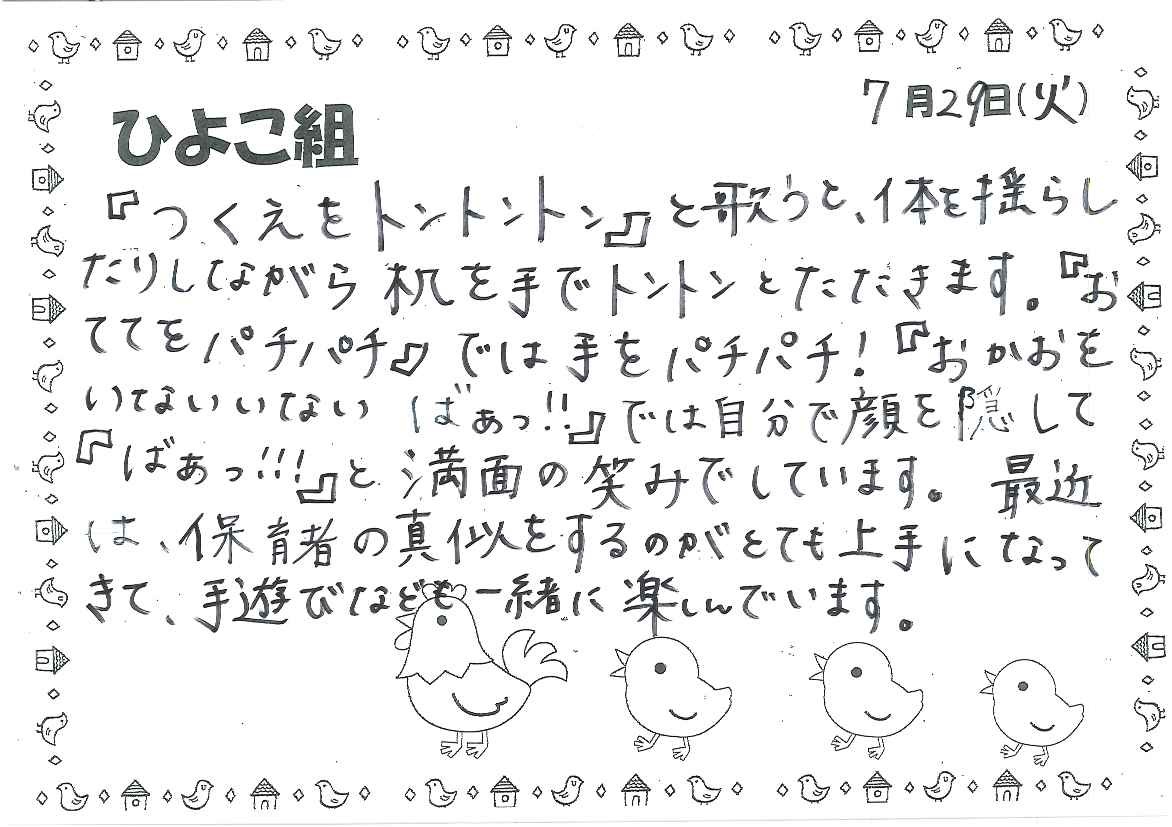 7月29日(火)
ひよこ組
『つくえをトントントン』と歌うと、体を揺らし
たりしながら机を手でトントンとたたきます。『お
ててをパチパチ』では手をパチパチ!『おかおを
いないいない ばぁっ!!』では自分で顔を隠して
『ばぁっ!!!』と満面の笑みでしています。最近
は、保育者の真似をするのがとても上手になって
きて、手遊びなども一緒に楽しんでいます。